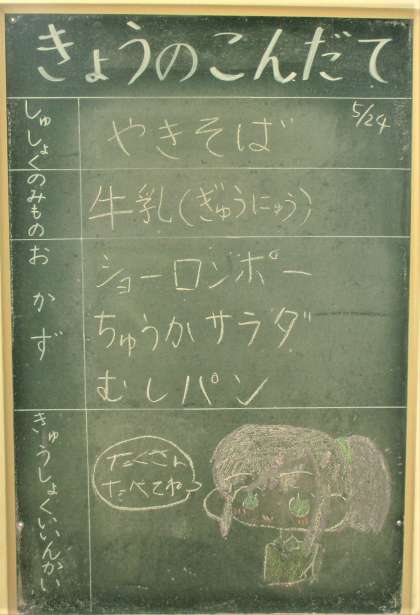 きょうのこんだて
5/24
しゅしょく
やきそば
のみもの
牛乳(ぎゅうにゅう)
おかず
ショーロンポー
ちゅうかサラダ
むしパン
きゅうしょくいいんかい
たくさん
たべてね